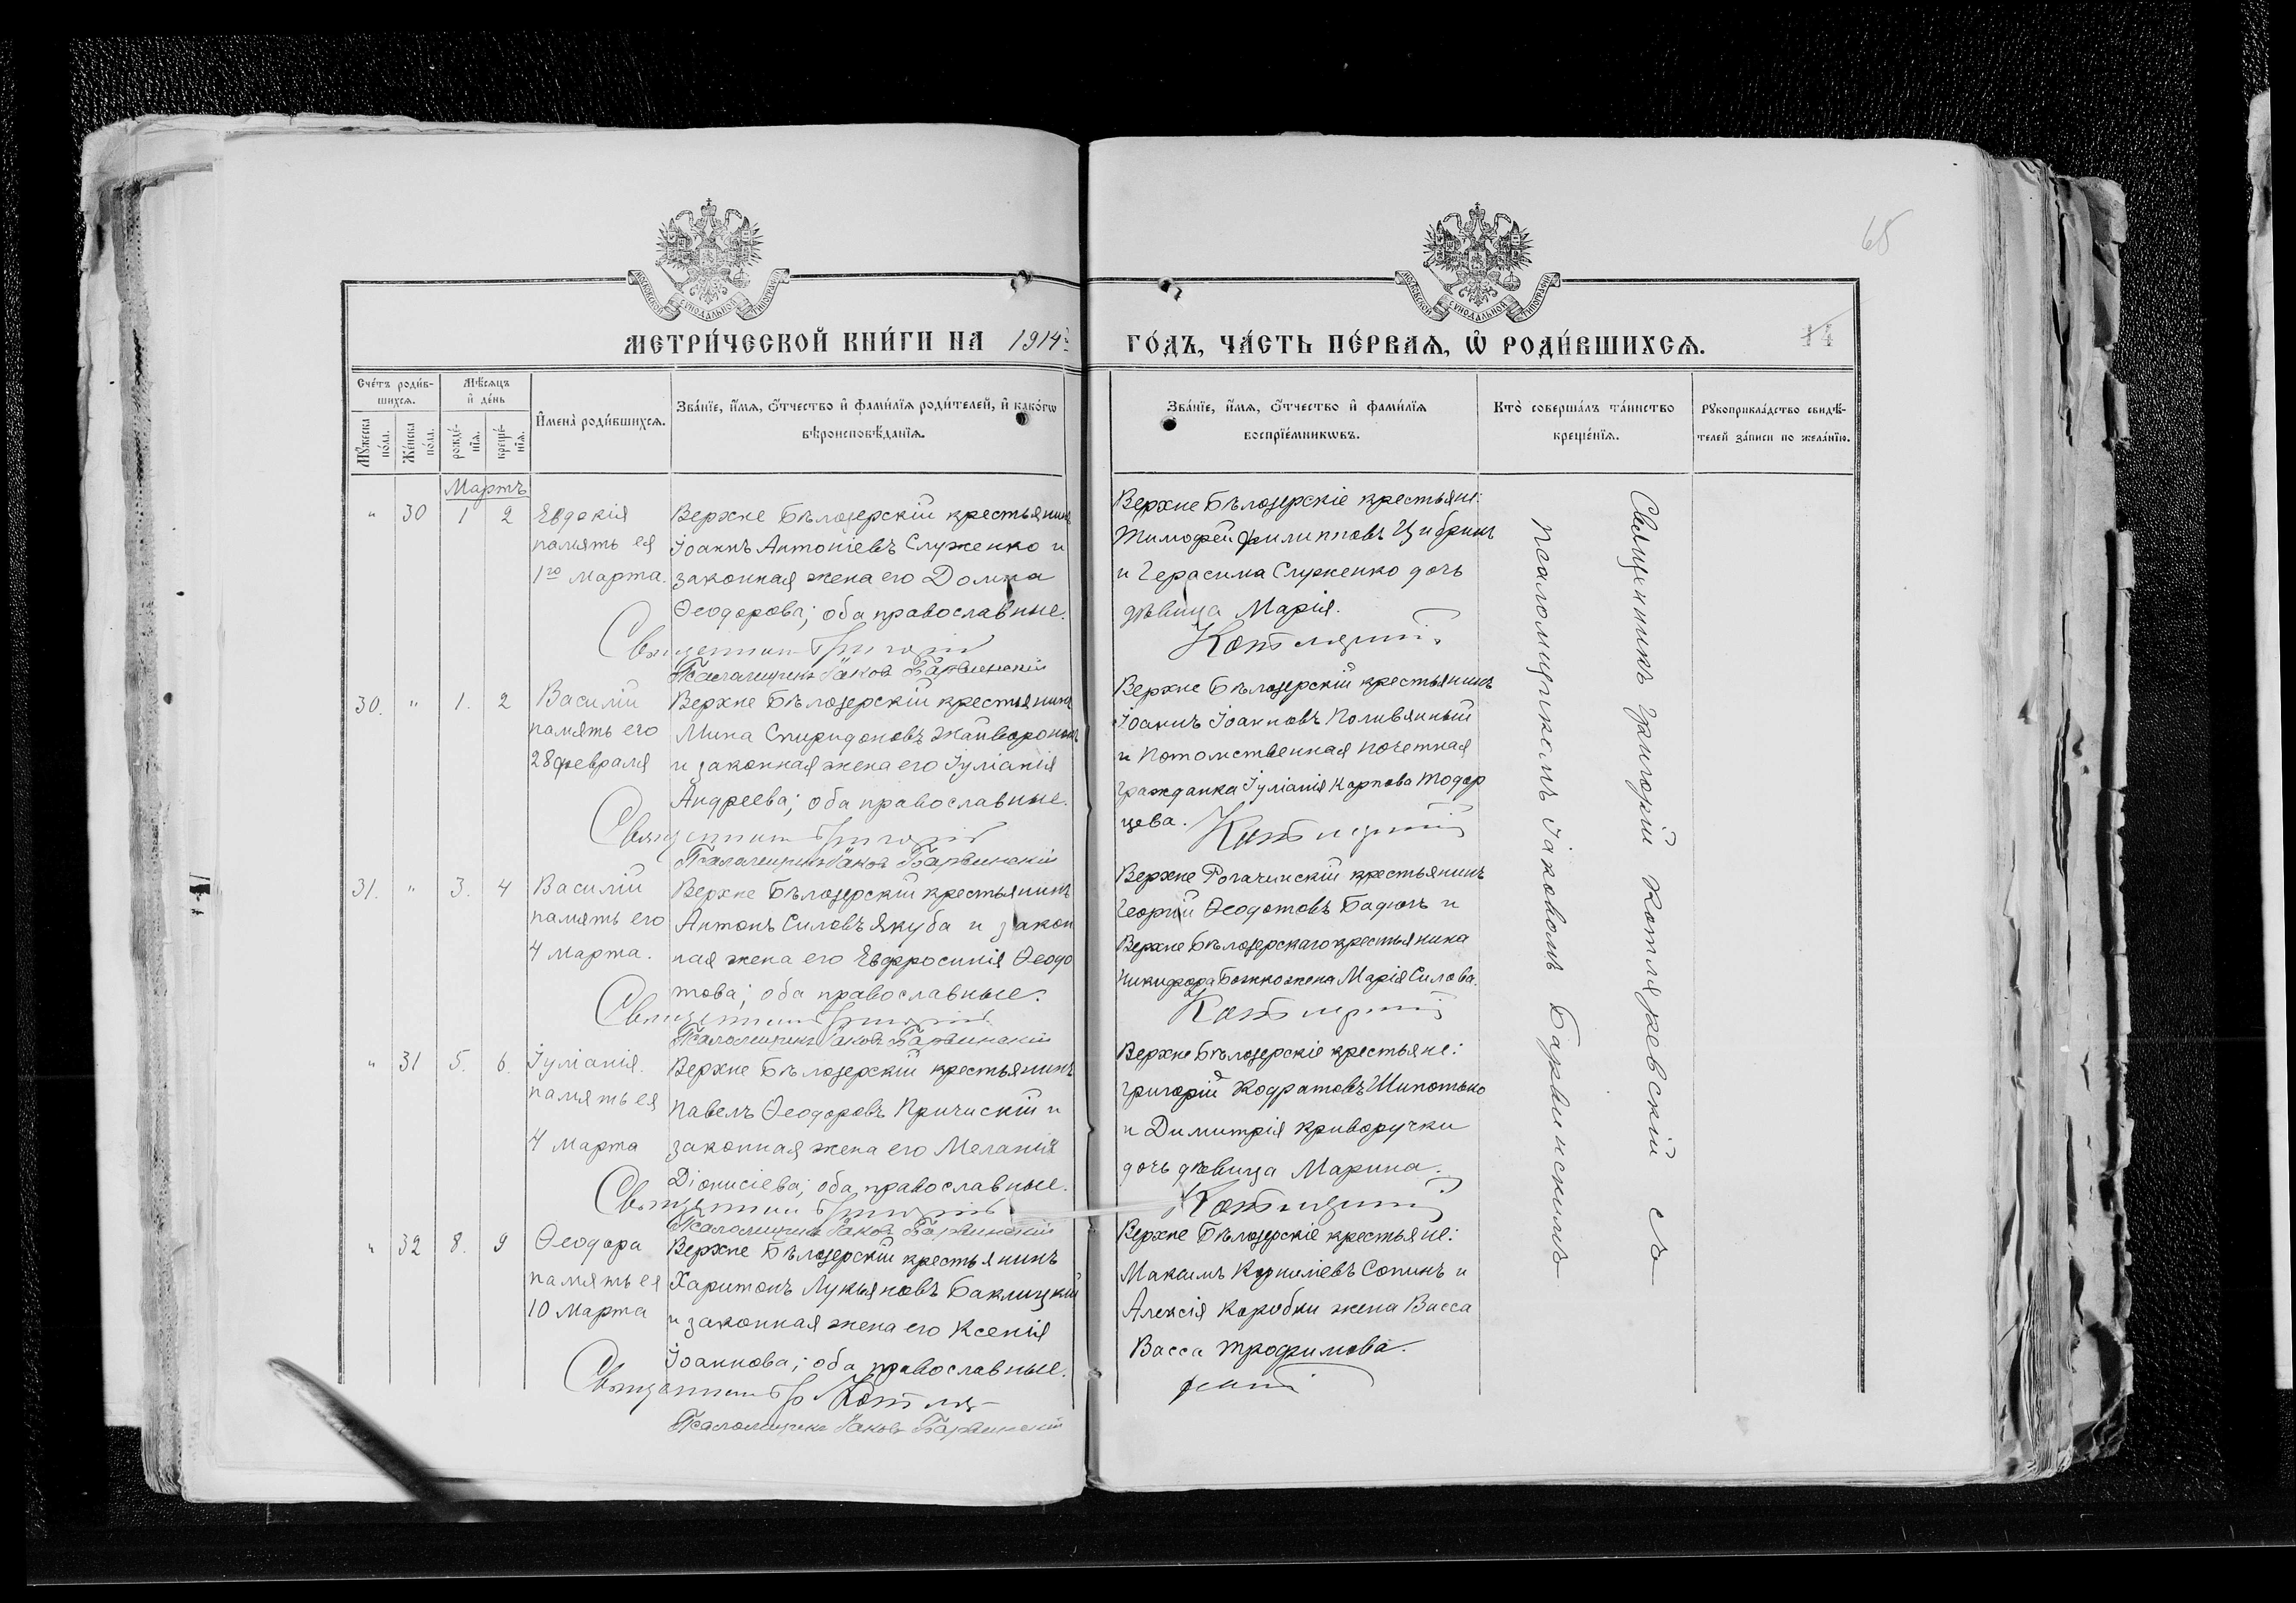 65
МОСКОВСКОЙ СУНОДАЛЬНОЙ ТИПОГРАФІИ
МОСКОВСКОЙ СУНОДАЛЬНОЙ ТИПОГРАФІИ
МЕТРИ́ЧЕСКОЙ КНИ́ГИ НА 1914й
ГО́ДЪ, ЧА́СТЬ ПЕ́РВАЯ, Ѡ҆ РОДИ́ВШИХСЯ.
14
Сче́тъ роди́в-
шихся.
Мѣ́сяцъ
и҆ де́нь
Мꙋ́жеска по́ла.
Же́нска по́ла.
рожде́-
нїя.
креще́-
нїя.
И҆мена̀ роди́вшихся.
Зва́нїе, и҆́мя, ѻ҆́тчество и҆ фами́лїя роди́телей, и҆ како́гѡ
вѣроисповѣ́данїя.
Зва́нїе, и҆́мя, ѻ҆́тчество и҆ фами́лїя
воспрїе́мникѡвъ.
Кто̀ соверша́лъ та́инство
креще́нїя.
Рꙋкоприкла́дство свидѣ́-
телей за́писи по жела́нїю.
Мартъ
" 30 1 2
Евдокія
память ея
1го Марта.
Верхне Бѣлозерскій крестьянинъ
Іоаннъ Антоніевъ Служенко и
законная жена его Домна
Ѳеодорова; оба православные.
Священникъ Григорій
Псаломщикъ Іаковъ Барвинскій
Верхне Бѣлозерскіе крестьяне:
Тимофей Филипповъ Цибринъ
и Герасима Служенко дочь
дѣвица Марія.
30. " 1. 2
Василій
память его
28 февраля
Верхне Бѣлозерскій крестьянинъ
Мина Спиридоновъ Жайворонокъ
и законная жена его Іуліанія
Андреева; оба православные.
Священникъ Григорій
Псаломщикъ Іаковъ Барвинскій
Верхне Бѣлозерскій крестьянинъ
Іоаннъ Іоанновъ Поливянный
и Потомственная почетная
гражданка Іуліанія Карпова Тодор
цева.
31. " 3. 4
Василій
память его
4 марта.
Верхне Бѣлозерскій крестьянинъ
Антонъ Силовъ Якуба и закон
ная жена его Евфросинія Ѳеодо
това; оба православные.
Священникъ Григорій
Псаломщикъ Іаковъ Барвинскій
Верхне Рогачинскій крестьянинъ
Георгій Ѳеодотовъ Бадюль и
Верхне Бѣлозерскаго крестьянина
Никифора Божко жена Марія Силова.
" 31 5. 6.
Іуліанія.
память ея
4 Марта
Верхне Бѣлозерскій крестьянинъ
Павелъ Ѳеодоровъ Причискій и
законная жена его Меланія
Діонисіева; оба православные.
Священникъ Григорій
Псаломщикъ Іаковъ Барвинскій
Верхне Бѣлозерскіе крестьяне:
Григорій Кодратовъ Шипотько
и Димитрія Криворучки
дочь дѣвица Марина.
" 32 8. 9
Ѳеодора
память ея
10 Марта
Верхне Бѣлозерскій крестьянинъ
Харитонъ Лукьяновъ Баклицкій
и законная жена его Ксенія
Іоаннова; оба православные.
Священникъ Гр
Псаломщикъ Іаковъ Барвинскій
Верхне Бѣлозерскіе крестьяне:
Максимъ Корниліевъ Сопинъ и
Алексія Коробки жена Васса
Васса Трофимова.
Священникъ Григорій Котляревскій съ
псаломщикомъ Іаковомъ Барвинскимъ